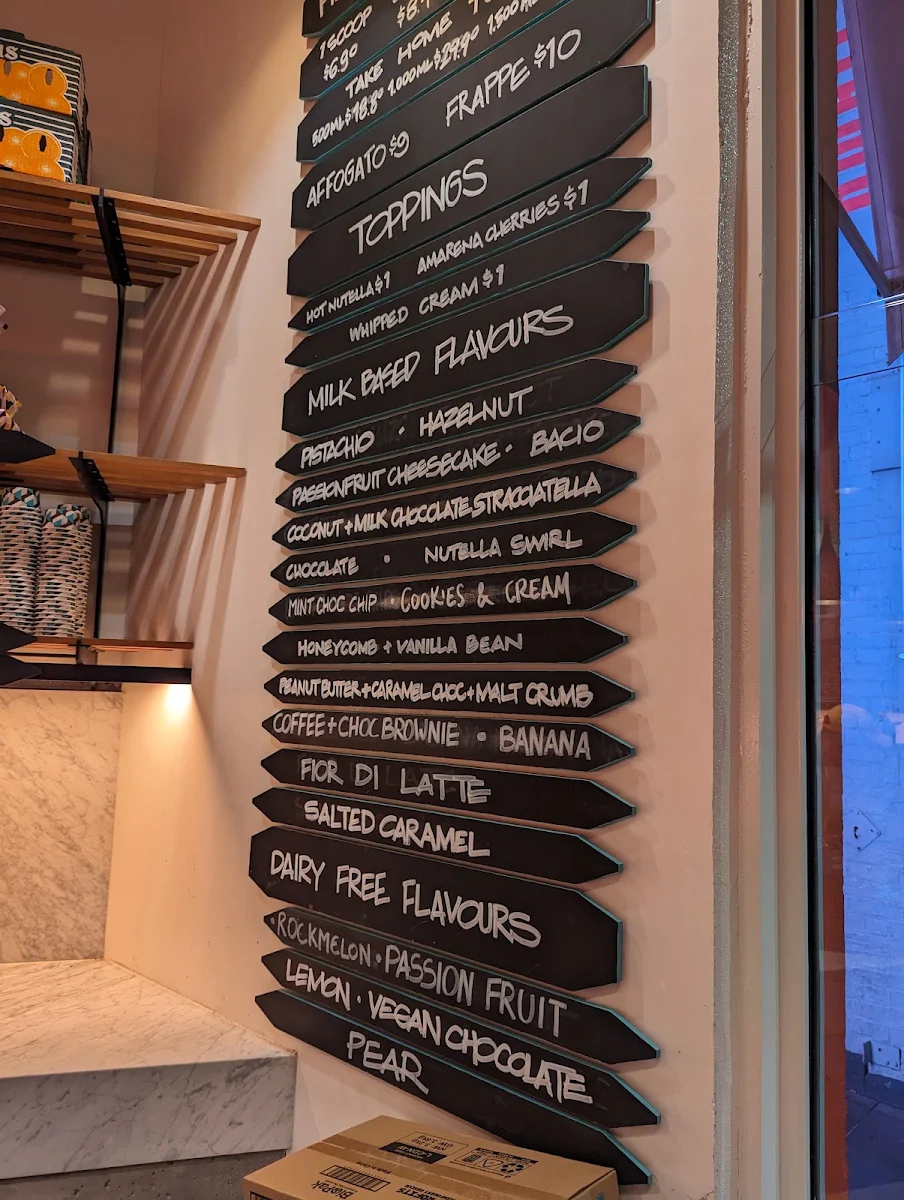 1 SCOOP
$6.90
TAKE HOME
500ML $18.80 1.000ML $29.90
AFFOGATO $9 FRAPPE $10
TOPPINGS
HOT NUTELLA $1 AMARENA CHERRIES $1
WHIPPED CREAM $1
MILK BASED FLAVOURS
PISTACHIO · HAZELNUT
PASSIONFRUIT CHEESECAKE · BACIO
COCONUT + MILK CHOCOLATE STRACCIATELLA
CHOCOLATE · NUTELLA SWIRL
MINT CHOC CHIP · COOKIES & CREAM
HONEYCOMB + VANILLA BEAN
PEANUT BUTTER + CARAMEL CHOC + MALT CRUMB
COFFEE + CHOC BROWNIE · BANANA
FIOR DI LATTE
SALTED CARAMEL
DAIRY FREE FLAVOURS
· ROCKMELON · PASSION FRUIT
LEMON · VEGAN CHOCOLATE
PEAR
BioPak